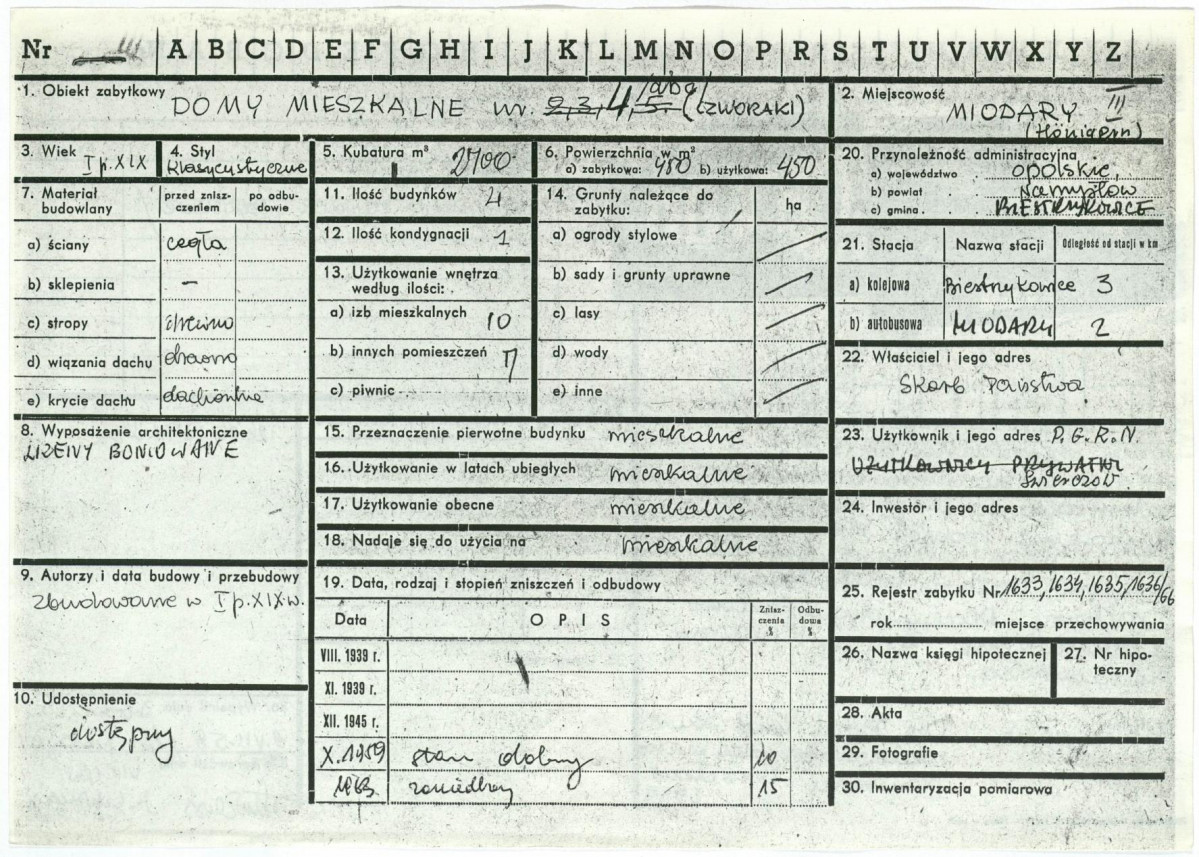 Nr III A B C D E F G H I J K L M N O P R S T U V W X Y Z
1. Obiekt zabytkowy DOMY MIESZKALNE nr. 2, 3, 4, 5 (CZWORAKI)
2. Miejscowość III
MIODARY
3. Wiek I p. XIX
4. Styl
klasycystyczne
5. Kubatura m³ 2700
6. Powierzchnia w m²
a) zabytkowa: 450 b) użytkowa: 450
7. Materiał budowlany
przed zniszczeniem
po odbudowie
a) ściany cegła
b) sklepienia –
c) stropy drewno
d) wiązania dachu drewno
e) krycie dachu dachówka
8. Wyposażenie architektoniczne
LIZENY BONIOWANE
9. Autorzy i data budowy i przebudowy
zbudowane w I p. XIX w.
10. Udostępnienie
dostępny
11. Ilość budynków 4
12. Ilość kondygnacji 1
13. Użytkowanie wnętrza
według ilości:
a) izb mieszkalnych 10
b) innych pomieszczeń
c) piwnic
14. Grunty należące do
zabytku: ha
a) ogrody stylowe
b) sady i grunty uprawne
c) lasy
d) wody
e) inne
15. Przeznaczenie pierwotne budynku mieszkalne
16. Użytkowanie w latach ubiegłych mieszkalne
17. Użytkowanie obecne mieszkalne
18. Nadaje się do użycia na mieszkalne
19. Data, rodzaj i stopień zniszczeń i odbudowy
Data OPIS Zniszczenia % Odbudowa %
VIII. 1939 r.
XI. 1939 r.
XII. 1945 r.
X. 1959 stan dobry
1963 zaniedbany 15
20. Przynależność administracyjna
a) województwo opolskie,
b) powiat Namysłów
c) gmina BIESTRZYKOWICE
21. Stacja Nazwa stacji Odległość od stacji w km
a) kolejowa Biestrzykowice 3
b) autobusowa MIODARY 2
22. Właściciel i jego adres
Skarb Państwa
23. Użytkownik i jego adres P.G.R.N.
UŻYTKOWNICY PRYWATNI
Świerczów
24. Inwestor i jego adres
25. Rejestr zabytku Nr 1633, 1634, 1635, 1636/66
rok miejsce przechowywania
26. Nazwa księgi hipotecznej
27. Nr hipoteczny
28. Akta
29. Fotografie
30. Inwentaryzacja pomiarowa